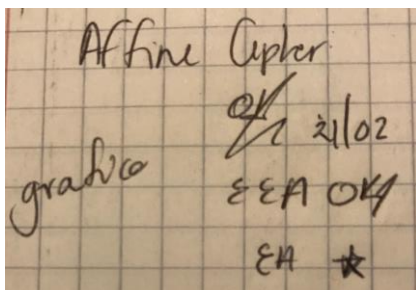 Affine Cipher
OK 21/02
grafico
EEA OK
EA ★